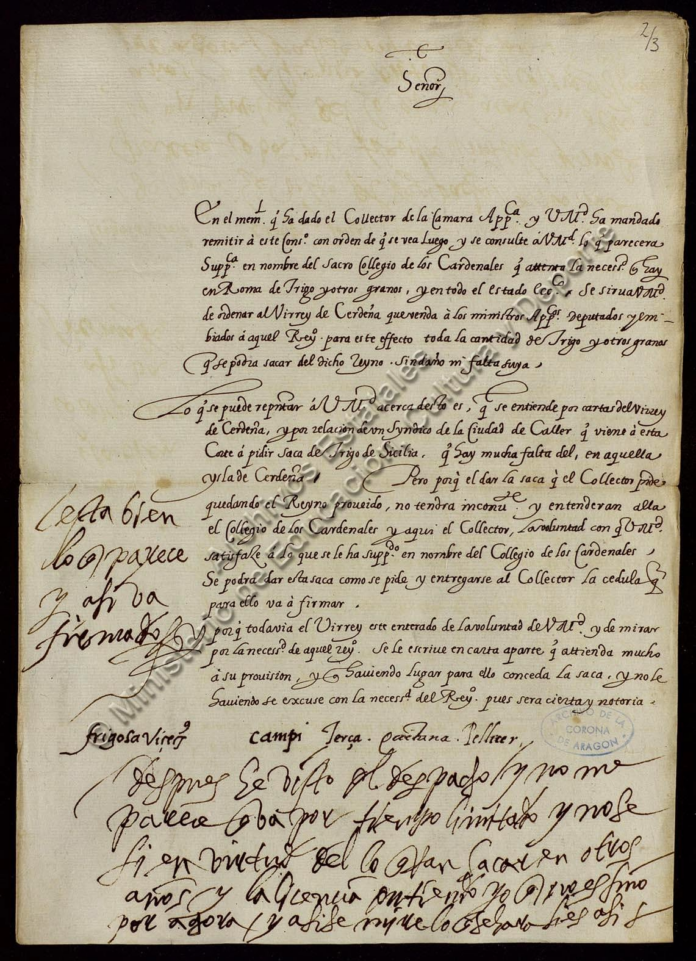 2/3
Señor
En el mem.l q̃ ha dado el Collector de la Camara App.ca y V M.d ha mandado
remitir à este Cons.o con orden de q̃ se vea luego y se consulte à V M.d lo q̃ parecera
Supp.ca en nombre del sacro Collegio de los Cardenales q̃ attento la necess.d q̃ hay
en Roma de Trigo y otros granos, y en todo el estado Ecc.co Se sirva V M.d
de ordenar al Virrey de Cerdeña que venda à los ministros App.cos Deputados y em-
biados à aquel Rey.o para este effecto toda la cantidad de Trigo y otros granos
q̃ se podra sacar del dicho Reyno sin daño ni falta suya.
Lo q̃ se puede repñtar à V M.d acerca desto es, q̃ se entiende por cartas del Virrey
de Cerdeña, y por relacion de un Syndico de la Ciudad de Caller q̃ viene à esta
Corte à pidir saca de Trigo de Sicilia, q̃ hay mucha falta del, en aquella
ysla de Cerdeña. Pero porq̃ el dar la saca q̃ el Collector pide
quedando el Reyno proueido, no tendra inconu.te y entenderan alla
el Collegio de los Cardenales y aqui el Collector, la voluntad con q̃ V M.d
satisfaze à lo que se le ha supp.do en nombre del Collegio de los Cardenales.
Se podra dar esta saca como se pide y entregarse al Collector la cedula q̃
para ello va à firmar.
porq̃ todavia el Virrey este enterado de la voluntad de V M.d y de mirar
por la necess.d de aquel rey.o Se le escriue en carta aparte q̃ attienda mucho
à su provision, y q̃ haviendo lugar para ello conceda la saca, y no le
haviendo se excuse con la necess.d del Rey.o pues sera cierta y notoria.
esta bien
lo q̃ parece
y asi va
firmado
frigola vicec.o campi Terça. quintana. Pellicer.
despues he visto el despacho y no me
parece q̃ va por tiempo limitado y no se
si en virtud del lo q̃rran sacar en otros
años y la licencia entiendo yo q̃ no es sino
por agora y asi se mire lo q̃ se hara si es asi
ARCHIVO DE LA
CORONA
DE ARAGON
© Ministerio de Educación, Cultura y Deporte
Archivos Estatales